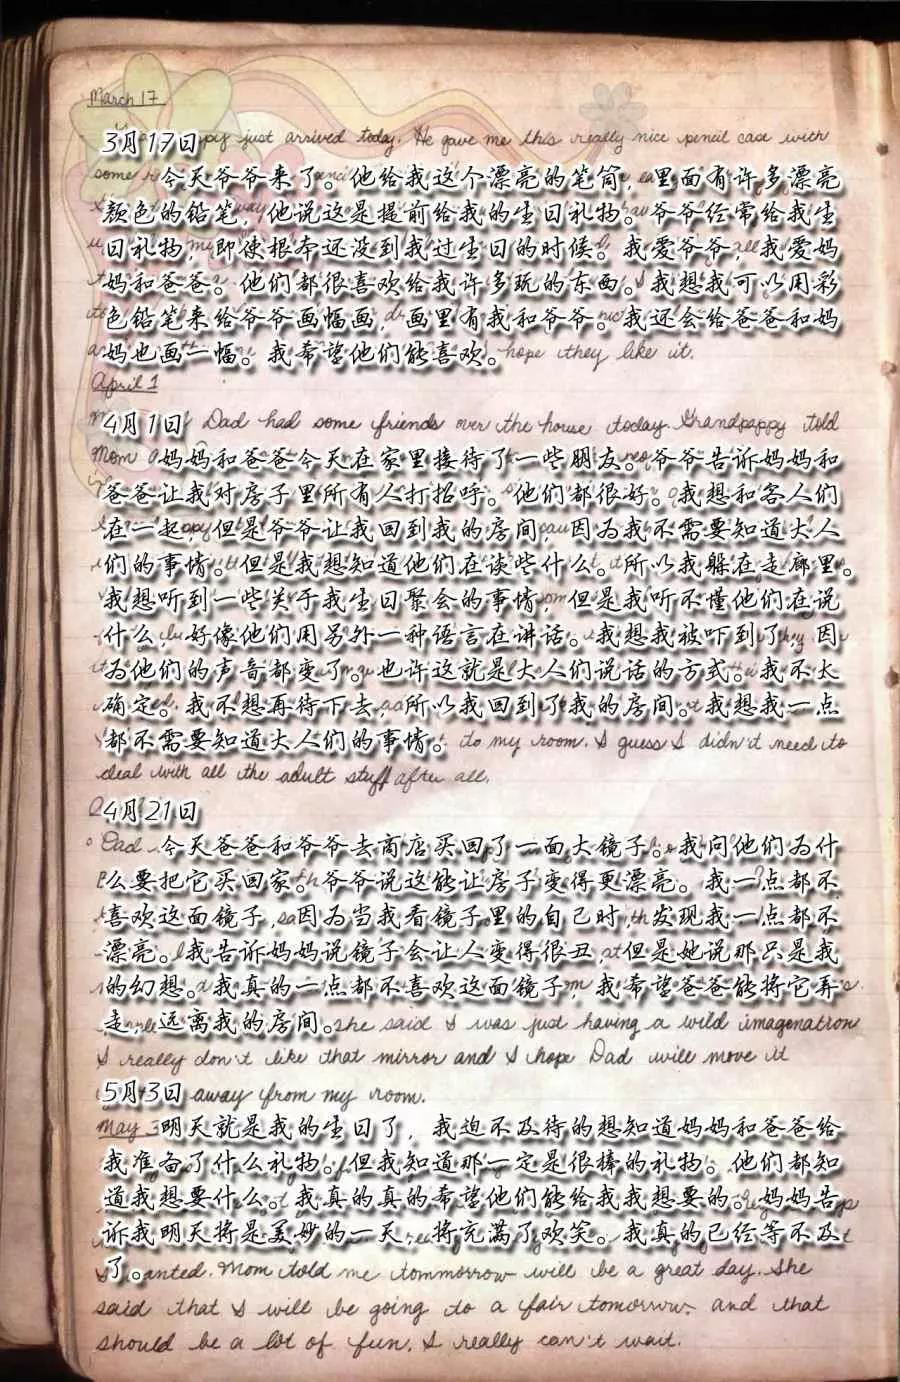 March 17
3月17日
py just arrived today. He gave me this really nice pencil case with
今天爷爷来了。他给我这个漂亮的笔筒，里面有许多漂亮
颜色的铅笔，他说这是提前给我的生日礼物。爷爷经常给我生
日礼物，即使根本还没到我过生日的时候。我爱爷爷，我爱妈
妈和爸爸。他们都很喜欢给我许多玩的东西。我想我可以用彩
色铅笔来给爷爷画幅画，画里有我和爷爷。我还会给爸爸和妈
妈也画一幅。我希望他们能喜欢。hope they like it.
April 1
4月1日 Dad had some friends over the house today. Grandpappy told
Mom 妈妈和爸爸今天在家里接待了一些朋友。爷爷告诉妈妈和
爸爸让我对房子里所有人打招呼。他们都很好。我想和客人们
在一起，但是爷爷让我回到我的房间，因为我不需要知道大人
们的事情。但是我想知道他们在谈些什么。所以我躲在走廊里。
我想听到一些关于我生日聚会的事情，但是我听不懂他们在说
什么，好像他们用另外一种语言在讲话。我想我被吓到了，因
为他们的声音都变了。也许这就是大人们说话的方式。我不太
确定。我不想再待下去，所以我回到了我的房间。我想我一点
都不需要知道大人们的事情。to my room. I guess I didn't need to
deal with all the adult stuff after all.
4月21日
Dad 今天爸爸和爷爷去商店买回了一面大镜子。我问他们为什
么要把它买回家。爷爷说这能让房子变得更漂亮。我一点都不
喜欢这面镜子，因为当我看镜子里的自己时，发现我一点都不
漂亮。我告诉妈妈说镜子会让人变得很丑，但是她说那只是我
的幻想。我真的一点都不喜欢这面镜子，我希望爸爸能将它弄
走，远离我的房间。she said I was just having a wild imagenation
I really don't like that mirror and I hope Dad will move it
5月3日 away from my room.
May 3 明天就是我的生日了，我迫不及待的想知道妈妈和爸爸给
我准备了什么礼物。但我知道那一定是很棒的礼物。他们都知
道我想要什么。我真的真的希望他们能给我我想要的。妈妈告
诉我明天将是美妙的一天，将充满了欢笑。我真的已经等不及
了。wanted. Mom told me tommorrow will be a great day. She
said that I will be going to a fair tomorrow. and that
should be a lot of fun. I really can't wait.